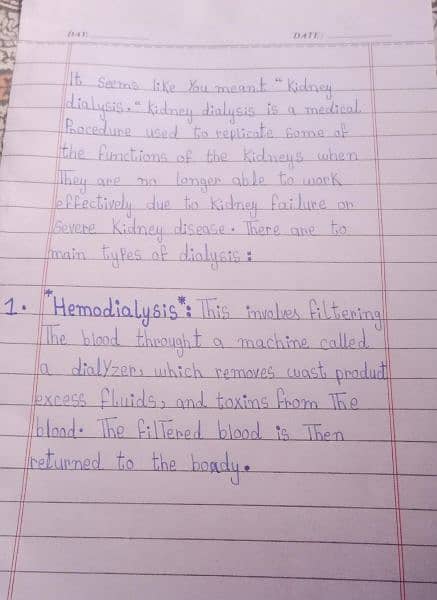 DAY
DATE:
It seems like You meant "Kidney
dialysis." Kidney dialysis is a medical
Procedure used to replicate some of
the functions of the kidneys when
They are no longer able to work
effectively due to kidney failure or
severe Kidney disease. There are to
main types of dialysis:
1. *"Hemodialysis"*: This involves filtering
The blood throught a machine called
a dialyzer, which removes wast product
excess fluids, and toxins from The
blood. The filtered blood is Then
returned to the boady.